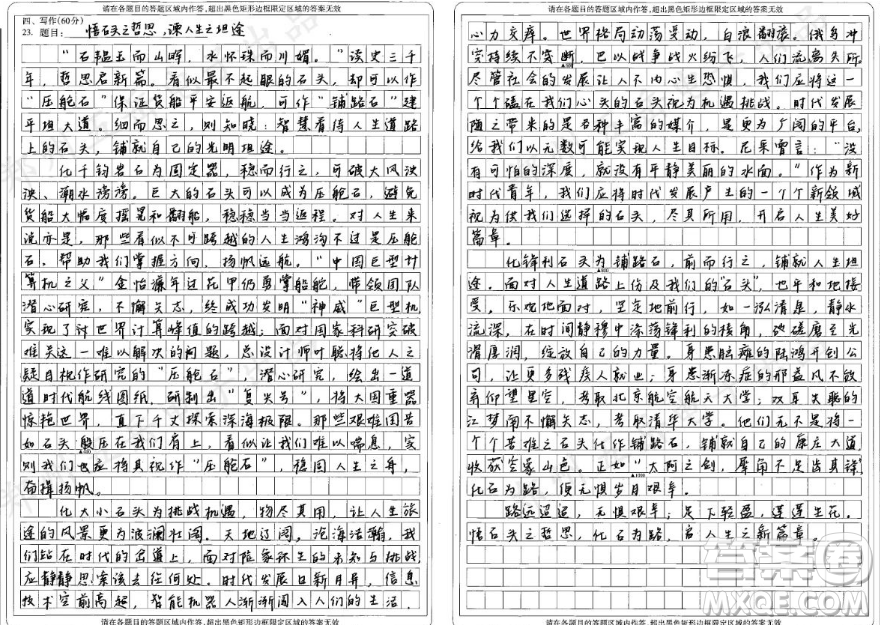 请在各题目的答题区域内作答,超出黑色矩形边框限定区域的答案无效
四、写作(60分)
23. 题目: 悟石头之哲思,谏人生之坦途
“石韫玉而山晖,水怀珠而川媚。”读史三千
年,哲思启新篇。看似最不起眼的石头,却可以作
“压舱石”保证货船平安返航,可作“铺路石”建
平坦大道。细而思之,则知晓:智慧看待人生道路
上的石头,铺就自己的光明坦途。
化千钧岩石为固定器,稳而行之,可破大风泱
泱、潮水滂滂。巨大的石头可以成为压舱石,避免
货船大幅度摇晃和翻船,稳稳当当返程。对人生来
说亦是,那些看似不可跨越的人生鸿沟不过是压舱
石,帮助我们掌握方向,扬帆远航。“中国巨型计
算机之父”金怡濂年过花甲仍勇掌船舵,带领团队
潜心研究,不懈矢志,终成功发明“神威”巨型机
实现了对世界计算峰值的跨越;面对国家科研突破
难关这一难以解决的问题,总设计师叶聪将他人之
疑目视作研究的“压舱石”,潜心研究,绘出一道
道时代航线图纸,研制出“奋斗者”,将大国重器
惊艳世界,直下千丈探索深海极限。那些艰难困苦
如石头般压在我们肩上,看似让我们难以喘息,实
则我们也应将其视作“压舱石”,稳固人生之舟,
奋楫扬帆。
化大小石头为挑战机遇,物尽其用,让人生旅
途的风景更为波澜壮阔。天地辽阔,沧海浩瀚,我
们站在时代的甬道上,面对险象环生的未知与挑战,
应静静思索该去往何处。时代发展日新月异,信息
技术空前高超,智能机器人渐渐闯入人们的生活,
请在各题目的答题区域内作答,超出黑色矩形边框限定区域的答案无效
请在各题目的答题区域内作答,超出黑色矩形边框限定区域的答案无效
心力交瘁。世界格局动荡变动,白浪翻滚。俄乌冲
突持续不突断,巴以战争战火纷飞,人们流离失所
尽管社会的发展让人不内心生恐惧,我们应将这一
个个磕在我们心头的石头视为机遇挑战。时代发展
随之带来的是各种丰富的媒介,是更为广阔的平台,
给我们以无数可能实现人生目标。尼采曾言:“没
有可怕的深度,就没有平静美丽的水面。”作为新
时代青年,我们应将时代发展产生的一个个新领域
视为供我们选择的石头,尽其所用,开启人生美好
篇章。
化锋利石头为铺路石,前而行之,铺就人生坦
途。面对人生道路上伤及我们的“石头”,也平和地接
受。乐观地面对,坚定地前行,如一泓清泉,静水
流深,在时间静穆中涤荡锋利的棱角,使磋磨之光
滑厚润,绽放自己的力量。身患脑瘫的陆鸿开创公
司,让更多残疾人就业;身患渐冻症的邢益凡不放
弃仰望星空,考取北京航空航天大学;双耳失聪的
江梦南不懈矢志,考取清华大学。他们无不是将一
个个苦难之石头化作铺路石,铺就自己的康庄大道,
收获尝象山色。正如“太阿之剑,犀角不足齿其锋”,
化石为路,须无惧岁月艰辛。
路远迢迢,无惧艰辛;足下轻盈,莲莲生花。
悟石头之哲思,化石为路,启人生之新篇章。
请在各题目的答题区域内作答,超出黑色矩形边框限定区域的答案无效
答案圈
MXQE.COM